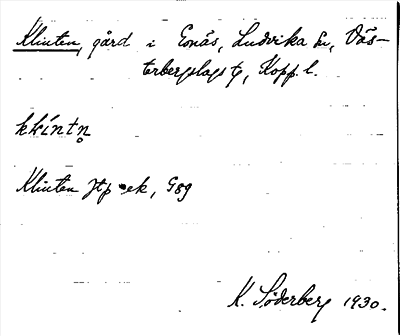 Klinten, gård i Gonäs, Ludvika sn, Väs-
terbergslags tg, Kopp. l.
kḷíntn̥
Klinten Jtp ek, G89
K. Söderberg 1930.